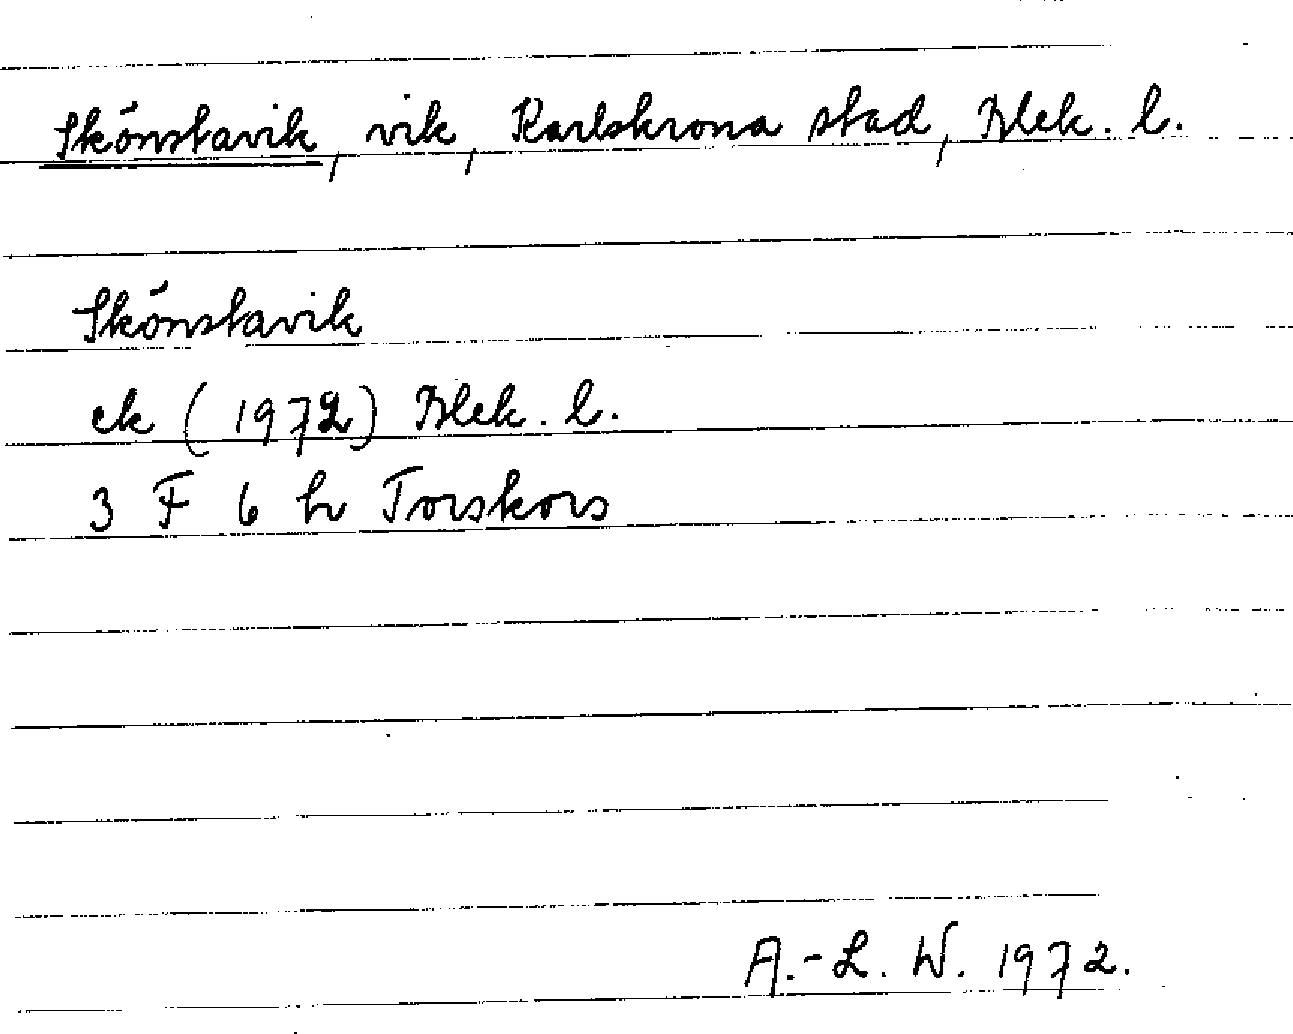 Skönstavik, vik, Karlskrona stad, Blek. l.
Skönstavik
ek (1972) Blek. l.
3 F 6 h Torskors
A.-L. W. 1972.